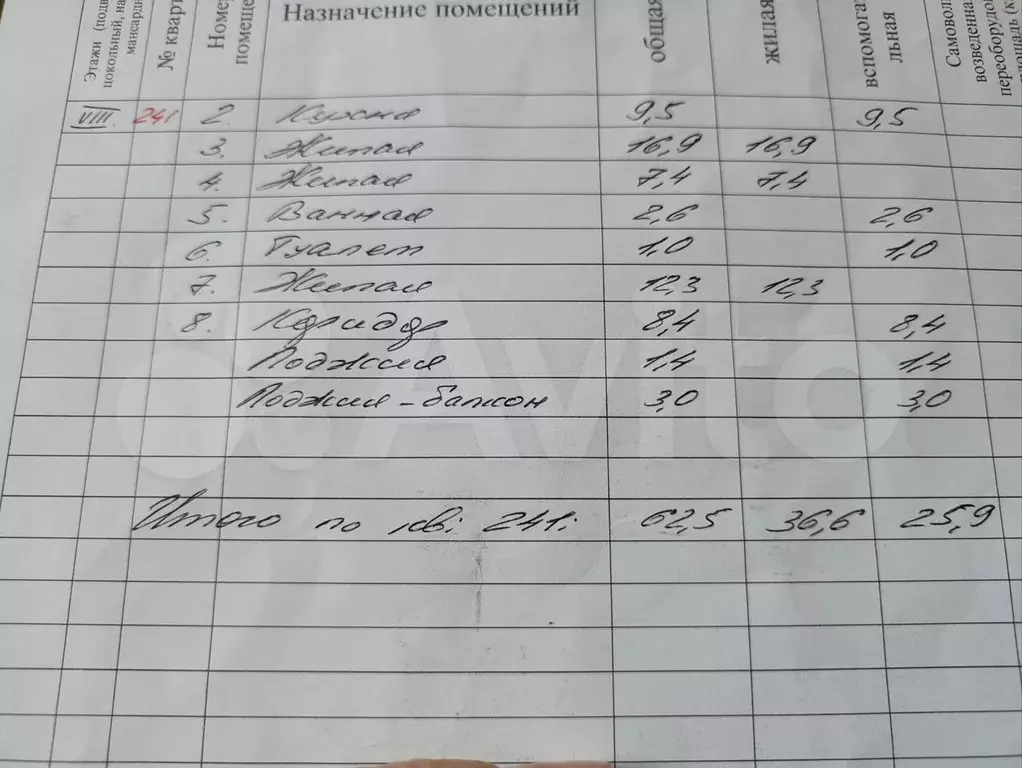 Этажи (подв
цокольный, на
мансардн
№ кварт
Номе
помеще
Назначение помещений
общая
жилая
вспомогат
льная
Самовол
возведенна
переоборудо
площадь (к
VIII 241 2. Кухня 9,5 9,5
3. Жилая 16,9 16,9
4. Жилая 7,4 7,4
5. Ванная 2,6 2,6
6. Туалет 1,0 1,0
7. Жилая 12,3 12,3
8. Коридор 8,4 8,4
Лоджия 1,4 1,4
Лоджия - балкон 3,0 3,0
Итого по кв: 241: 62,5 36,6 25,9
Avito